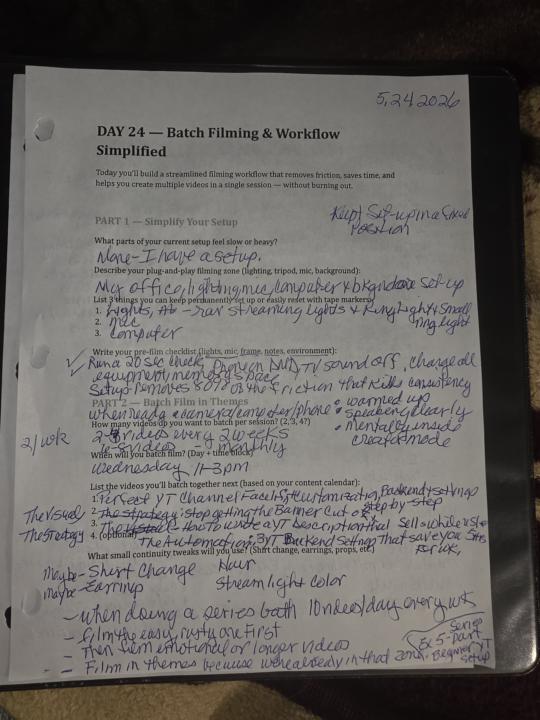 5,24 2026
DAY 24 — Batch Filming & Workflow
Simplified
Today you'll build a streamlined filming workflow that removes friction, saves time, and
helps you create multiple videos in a single session — without burning out.
Kept Set-up in a fixed
Position
PART 1 — Simplify Your Setup
What parts of your current setup feel slow or heavy?
None - I have a setup.
Describe your plug-and-play filming zone (lighting, tripod, mic, background):
My office, lighting, mic, computer & bkgnd are set-up
List 3 things you can keep permanently set up or easily reset with tape markers:
1. Lights, streaming Lights & Ring Light & Small
ring light
2. mic
3. Computer
Write your pre-film checklist (lights, mic, frame, notes, environment):
✓ Run a 20 sec check, Phone on DND, TV sound off, charge all
equipment, memory space
Setup removes 80% of the friction that kills consistency
PART 2 — Batch Film in Themes
when ready & camera/computer/phone • warmed up
How many videos do you want to batch per session? (2, 3, 4?)
• speaking clearly
2/wk 2- videos every 2 weeks
• Mentally inside
6- videos - monthly
creator mode
When will you batch film? (Day + time block)
Wednesday 11-3pm
List the videos you'll batch together next (based on your content calendar):
1. Perfect YT Channel Facelift, Customization, Backend settings
The Visuals 2. The Strategy: stop getting the Banner Cut off step-by-step
The Strategy 3. How to write a YT Description that Sells while u
4. (optional) The Automation, 3 YT Backend Settings that save you 5 hrs
per wk,
What small continuity tweaks will you use? (Shirt change, earrings, props, etc)
maybe - Shirt Change Hair
maybe - Earrings Streamlight color
- when doing a series batch 10 videos/day every wk
- film the easy, rusty one First
- Then film emotional or longer videos
- Film in themes because we're already in that zone.
Series
Ex 5-part
Beginner YT
Setup